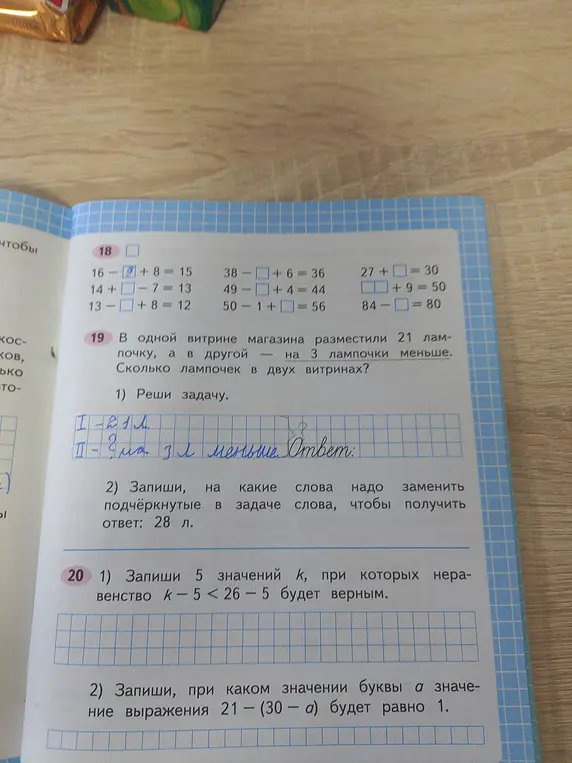 чтобы
кос-
ков,
ько
то-
18
16 − 9 + 8 = 15 38 − □ + 6 = 36 27 + □ = 30
14 + □ − 7 = 13 49 − □ + 4 = 44 □□ + 9 = 50
13 − □ + 8 = 12 50 − 1 + □ = 56 84 − □ = 80
19 В одной витрине магазина разместили 21 лам-
почку, а в другой — на 3 лампочки меньше.
Сколько лампочек в двух витринах?
1) Реши задачу.
I - 21 л. ?
II - ? на 3 л меньше Ответ:
2) Запиши, на какие слова надо заменить
подчёркнутые в задаче слова, чтобы получить
ответ: 28 л.
20 1) Запиши 5 значений k, при которых нера-
венство k − 5 < 26 − 5 будет верным.
2) Запиши, при каком значении буквы a значе-
ние выражения 21 − (30 − a) будет равно 1.